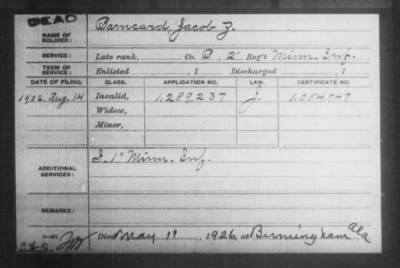 DEAD
NAME OF SOLDIER: Barncard Jacob Z.
SERVICE: Late rank, Co. B, 2" Reg't Minn. Inf.
TERM OF SERVICE: Enlisted , 1 Discharged , 1
DATE OF FILING. CLASS. APPLICATION NO. LAW. CERTIFICATE NO.
1902. Aug. 14 Invalid, 1,289,237 1,054,747
Widow,
Minor,
ADDITIONAL SERVICES: 1" Minn. Inf.
REMARKS:
Died May 1", 1926 at Birmingham Ala